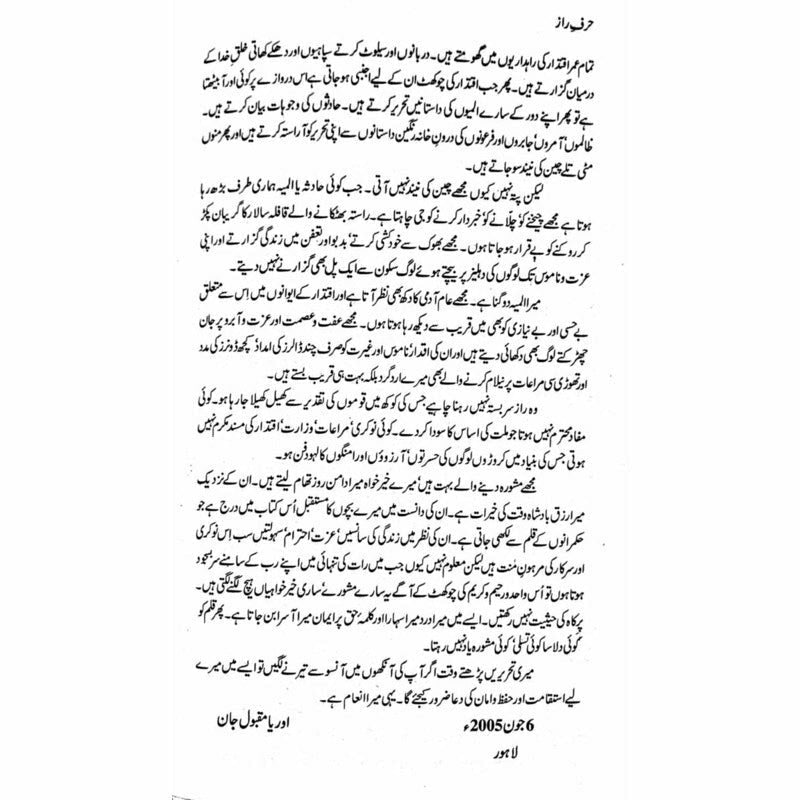 حرفِ راز
تمام عمر اقتدار کی راہداریوں میں گھومتے ہیں۔ دربانوں اور سیلوٹ کرتے سپاہیوں اور دھکے کھاتی خلقِ خدا کے
درمیان گزارتے ہیں۔ پھر جب اقتدار کی چوکھٹ ان کے لیے اجنبی ہو جاتی ہے اس دروازے پر کوئی اور آ بیٹھتا
ہے تو پھر اپنے دور کے سارے المیوں کی داستانیں تحریر کرتے ہیں۔ حادثوں کی وجوہات بیان کرتے ہیں۔
ظالموں' آمروں' جابروں اور فرعونوں کی درونِ خانہ رنگین داستانوں سے اپنی تحریر کو آراستہ کرتے ہیں اور پھر منوں
مٹی تلے چین کی نیند سو جاتے ہیں۔
لیکن پتہ نہیں کیوں مجھے چین کی نیند نہیں آتی۔ جب کوئی حادثہ یا المیہ ہماری طرف بڑھ رہا
ہوتا ہے مجھے چیخنے کو' چلّانے کو' خبردار کرنے کو جی چاہتا ہے۔ راستہ بھٹکانے والے قافلہ سالار کا گریبان پکڑ
کر روکنے کو بے قرار ہو جاتا ہوں۔ مجھے بھوک سے خودکشی کرتے' بدبو اور تعفن میں زندگی گزارتے اور اپنی
عزت و ناموس تک لوگوں کی دہلیز پر بیچتے ہوئے لوگ سکون سے ایک پل بھی گزارنے نہیں دیتے۔
میرا المیہ دوگنا ہے۔ مجھے عام آدمی کا دکھ بھی نظر آتا ہے اور اقتدار کے ایوانوں میں اِس سے متعلق
بے حسی اور بے نیازی کو بھی میں قریب سے دیکھ رہا ہوتا ہوں۔ مجھے عفت و عصمت اور عزت و آبرو پر جان
چھڑکتے لوگ بھی دکھائی دیتے ہیں اور ان کی اقدار' ناموس اور غیرت کو صرف چند ڈالرز کی امداد' کچھ ڈونرز کی مدد
اور تھوڑی سی مراعات پر نیلام کرنے والے بھی میرے اردگرد بلکہ بہت ہی قریب بستے ہیں۔
وہ راز سربستہ نہیں رہنا چاہیے جس کی کوکھ میں قوموں کی تقدیر سے کھیل کھیلا جا رہا ہو۔ کوئی
مفاد محترم نہیں ہوتا جو ملت کی اساس کا سودا کر دے۔ کوئی نوکری' مراعات' وزارت' اقتدار کی مسند مکرم نہیں
ہوتی جس کی بنیاد میں کروڑوں لوگوں کی حسرتوں' آرزوؤں اور امنگوں کا لہو دفن ہو۔
مجھے مشورہ دینے والے بہت ہیں' میرے خیر خواہ میرا دامن روز تھام لیتے ہیں۔ ان کے نزدیک
میرا رزق بادشاہ وقت کی خیرات ہے۔ ان کی دانست میں میرے بچوں کا مستقبل اُس کتاب میں درج ہے جو
حکمرانوں کے قلم سے لکھی جاتی ہے۔ ان کی نظر میں زندگی کی سانسیں' عزت' احترام' سہولتیں سب اِس نوکری
اور سرکار کی مرہونِ منت ہیں لیکن معلوم نہیں کیوں جب میں رات کی تنہائی میں اپنے رب کے سامنے سربسجود
ہوتا ہوں تو اُس واحد و رحیم و کریم کی چوکھٹ کے آگے یہ سارے مشورے' ساری خیر خواہیاں ہیچ لگنے لگتی ہیں۔
پرکاہ کی حیثیت نہیں رکھتیں۔ ایسے میں میرا درد میرا سہارا اور کلمۂ حق پر ایمان میرا آسرا بن جاتا ہے۔ پھر قلم کو
کوئی دلاسا کوئی تسلی' کوئی مشورہ یاد نہیں رہتا۔
میری تحریریں پڑھتے وقت اگر آپ کی آنکھوں میں آنسو سے تیرنے لگیں تو ایسے میں میرے
لیے استقامت اور حفظ و امان کی دعا ضرور کیجئے گا۔ یہی میرا انعام ہے۔
6 جون 2005ء اوریا مقبول جان
لاہور